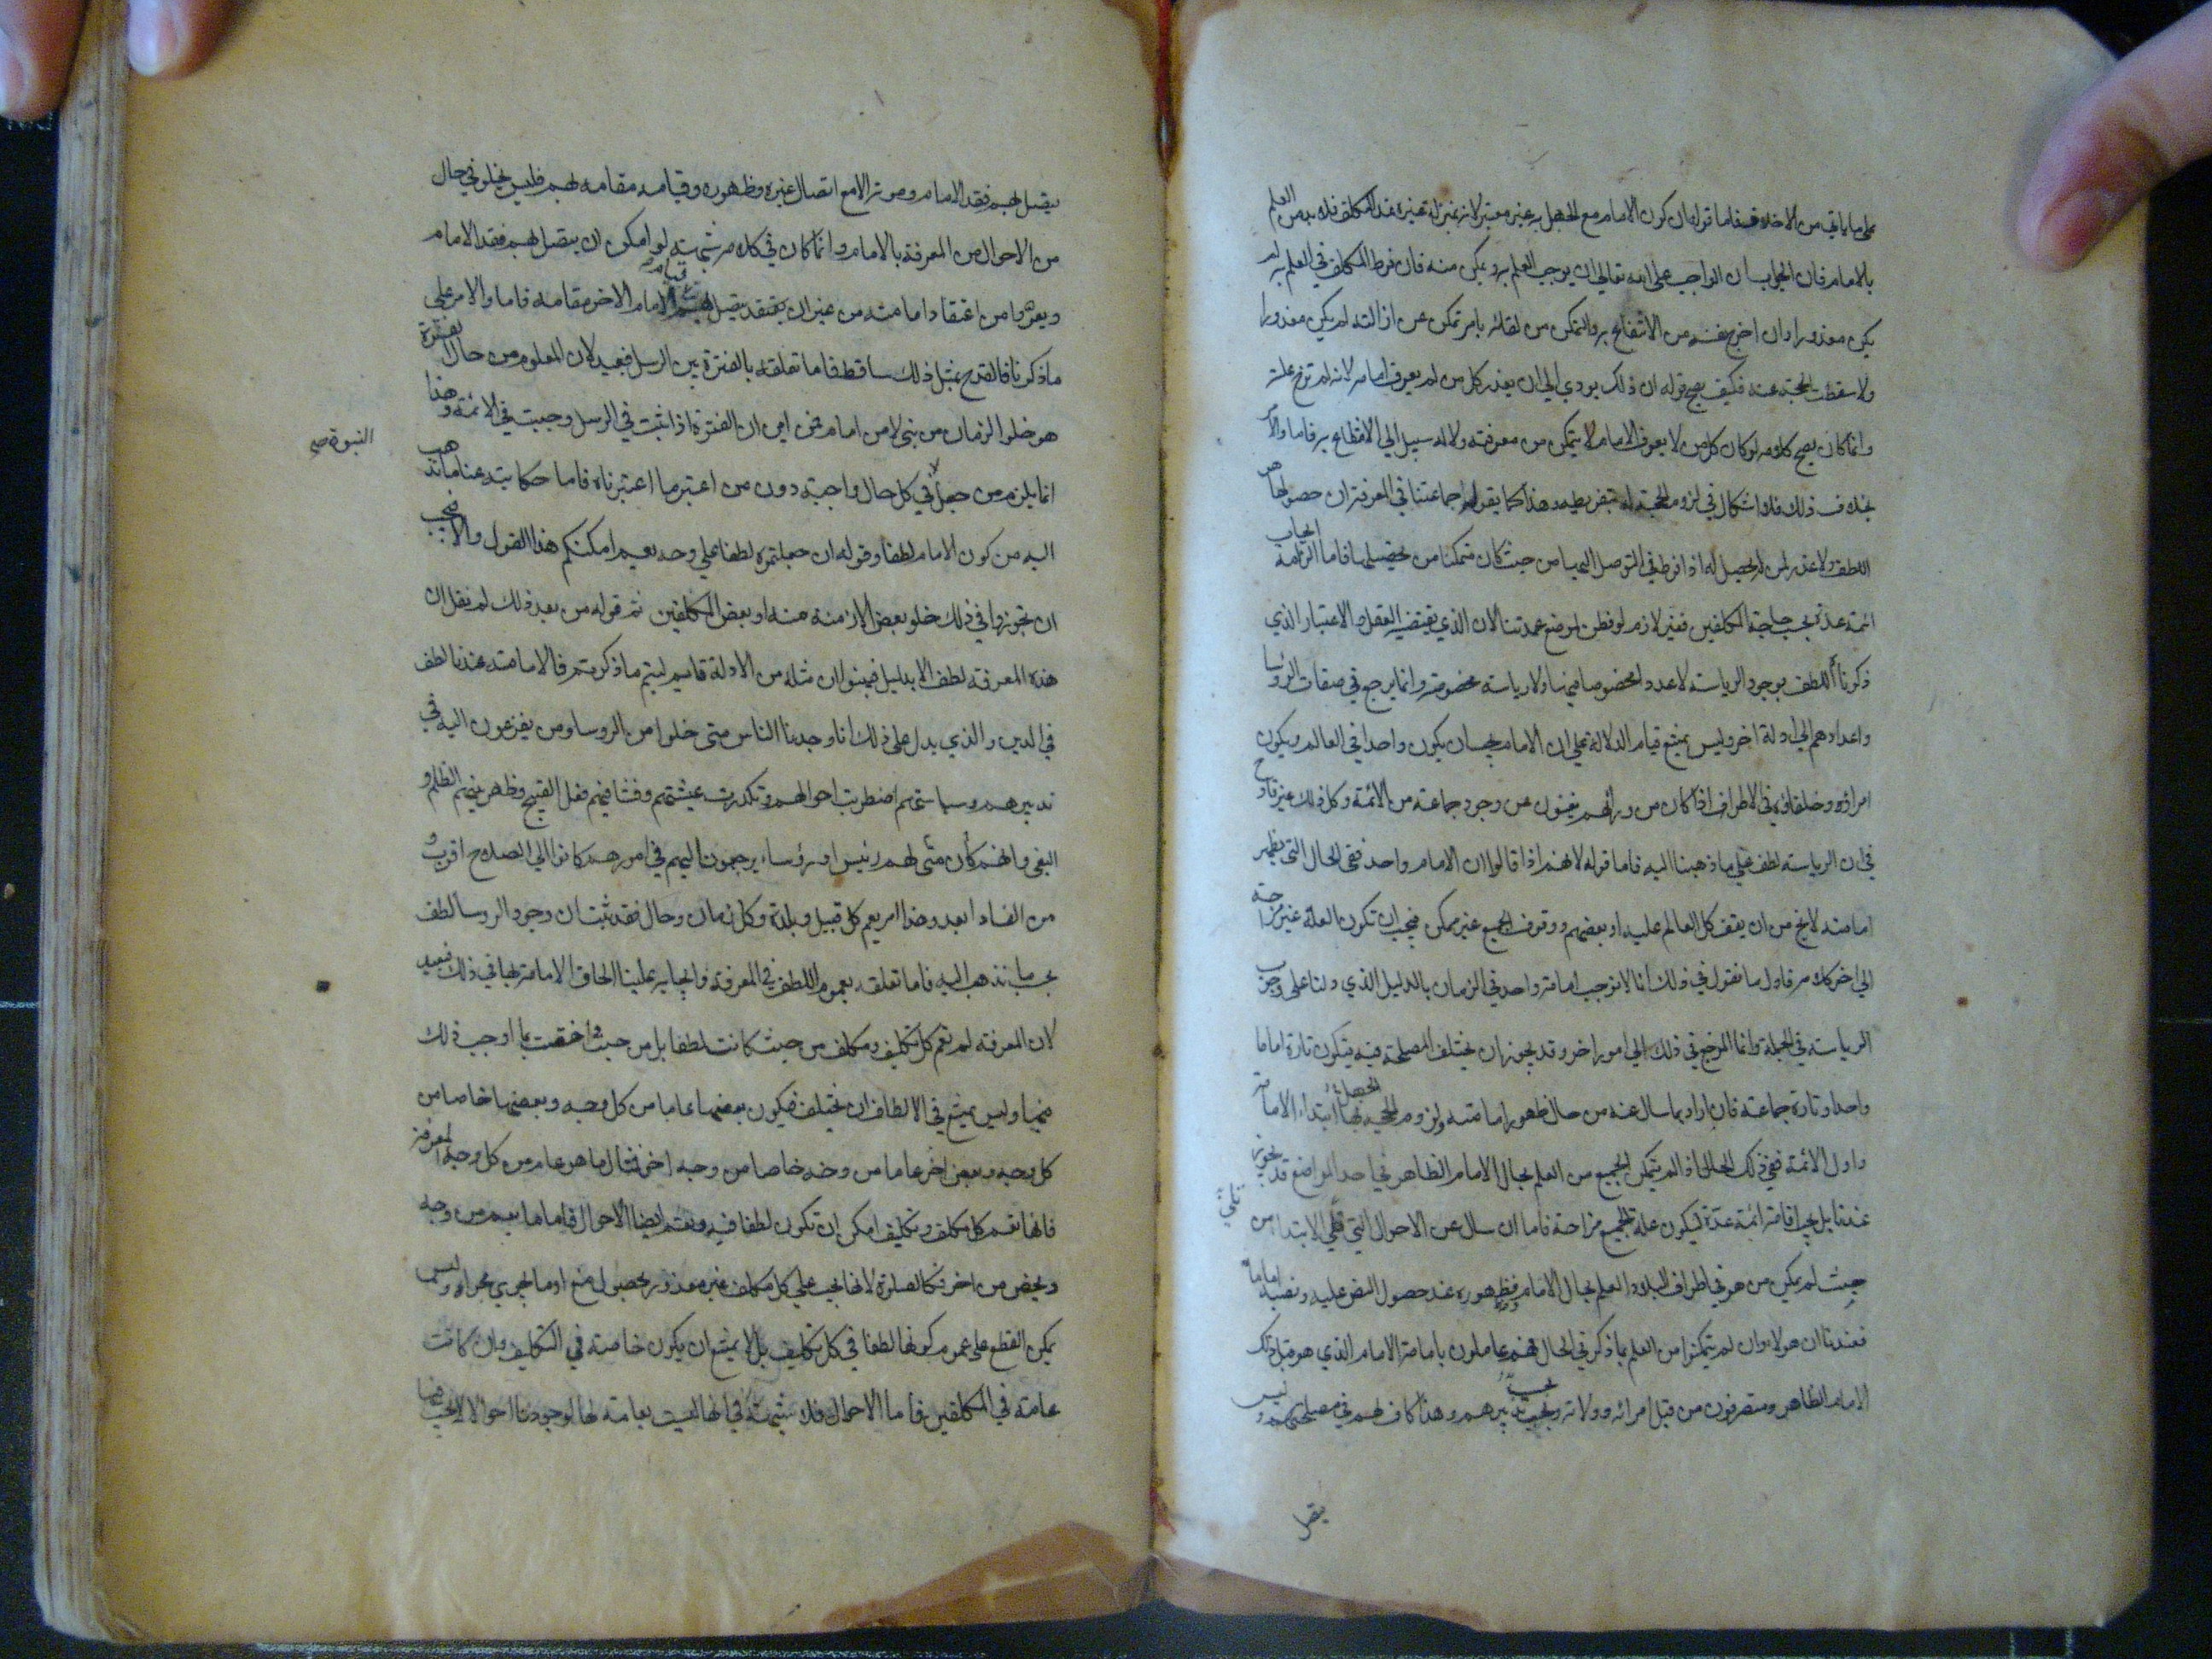 على ما ياتي من الاختلاف فاما قوله ان كون الامام مع الجهل به غير معتبر لانه بمنزلة غيره عند المكلف فلا بد من العلم
بالامام فان الجواب ان الواجب على الله تعالى ان يوجب العلم به ويمكن منه فان فرط المكلف في العلم به لم
يكن معذورا وان اخرج نفسه من الانتفاع به والتمكن من لقائه بامر تمكن من ازالته لم يكن معذورا
ولا سقطت الحجة عنه فكيف يصح قوله ان ذلك يودي الى ان يعذر كل من لم يعرف امامه لانه لم تزح علته
وانما كان يصح كلامه لو كان كل من لا يعرف الامام لا يتمكن من معرفته ولا له سبيل الى الانتفاع به فاما والامر
بخلاف ذلك فلا اشكال في لزوم الحجة له بتفريطه وهذا كما يقوله جماعتنا في المعرفة ان حصولها هو
اللطف ولا عذر لمن لم يحصل له اذا فرط في التوصل اليها من حيث كان متمكنا من تحصيلها فاما الزامه ايجاب
ائمة عدة بحسب حاجة المكلفين فغير لازم لو فطن لموضع عمدتنا لان الذي يقتضيه العقل والاعتبار الذي
ذكرناه اللطف بوجود الرياسة لا عدد مخصوصا فيها ولا رياسة مخصوصة وانما يرجع في صفات الروسا
واعدادهم الى ادلة اخر وليس يمتنع قيام الدلالة على ان الامام يجب ان يكون واحدا في العالم ويكون
امراؤه وخلفاؤه في الاطراف اذا كان من ورائهم يغنون عن وجود جماعة من الائمة وكل ذلك غير قادح
في ان الرياسة لطف على ما ذهبنا اليه فاما قوله لانهم اذا قالوا ان الامام واحد ففي الحال التي يظهر
امامته لا يخ من ان يقف كل العالم عليه او بعضهم ووقوف الجميع غير ممكن فيجب ان تكون العلة غير مزاحة
الى اخر كلامه فاول ما نقول في ذلك انا لا نوجب امامة واحد في الزمان بالدليل الذي دلنا على وجوب
الرياسة في الجملة وانما المرجع في ذلك الى امور اخر وقد يجوز ان يختلف المصلحة فيه فيكون تارة اماما
واحدا وتارة جماعة فان اراد بما سال عنه من حال ظهور امامته ولزوم الحجة بها ابتداء الامامة
واول الائمة ففي ذلك الحال اذا لم يتمكن الجميع من العلم بحال الامام الظاهر في احد المواضع قد يجوز
عندنا بل يجب اقامة ائمة عدة ليكون علة الجميع مزاحة فاما ان سال عن الاحوال التي تلي الابتدا من
حيث لم يكن من هو في اطراف البلاد العلم بحال الامام وظهوره عند حصول النص عليه ونصبه اماما
فعندنا ان هولاء وان لم يتمكنوا من العلم بما ذكر في الحال فهم عاملون بامامة الامام الذي هو قبل ذلك
الامام الظاهر ومتصرفون من قبل امرائه وولاته وبحسب تدبيرهم وهذا كاف لهم في مصلحتهم وليس
يتصل بهم فقد الامام وموته الا مع اتصال غيره وظهوره وقيامه مقامه بهم فليس يخلو في حال
من الاحوال من المعرفة بالامام وانما كان في كلامه شبهة لو امكن ان يتصل بهم فقد الامام
ويعروا من اعتقاد امامته من غير ان يعتقد يتصل بهم قيام الامام الاخر مقامه فاما والامر على
ما ذكرنا فالقدح بمثل ذلك ساقط فاما تعلقه بالفترة بين الرسل فبعيد لان المعلوم من حال الفترة
هو خلو الزمان من نبي لا من امام فمن اين ان الفترة اذا ثبت في الرسل وجبت في الائمة وهذا
النبوة صح
انما يلزم من جعل في كل حال واجبة دون من اعتبر ما اعتبرناه فاما حكايته عنا ما نذهب
اليه من كون الامام لطفا وقوله ان جعلتموه لطفا على وجه يعم امكنكم هذا القول والا فيجب
ان تجوزوا في ذلك خلو بعض الازمنة منه او بعض المكلفين ثم قوله من بعد ذلك لم نقل ان
هذه المعرفة لطف الا بدليل فبينوا ان مثله من الادلة قايم ليتم ما ذكرتم فالامامة عندنا لطف
في الدين والذي يدل على ذلك انا وجدنا الناس متى خلوا من الروسا ومن يفزعون اليه في
تدبيرهم وسياستهم اضطربت احوالهم وتكدرت عيشتهم وفشا فيهم فعل القبيح وظهر منهم الظلم و
البغي وانهم كان متى لهم رئيس او رؤساء يرجعون اليهم في امورهم كانوا الى الصلاح اقرب و
من الفساد ابعد وهذا امر يعم كل قبيل وبلدة وكل زمان وحال فقد ثبت ان وجود الروسا لطف
بحسب ما نذهب اليه فاما تعلقه بعموم اللطف في المعرفة وايجابه علينا الحاق الامامة بها في ذلك فبعيد
لان المعرفة لم تعم كل تكليف ومكلف من حيث كانت لطفا بل من حيث اختصت بما اوجب ذلك
فيها وليس يمتنع في الالطاف ان يختلف فيكون بعضها عاما من كل وجه وبعضها خاصا من
كل وجه وبعض اخر عاما من وجه خاصا من وجه اخر فمثال ما هو عام من كل وجه المعرفة
فانها تعم كل مكلف وتكليف امكن ان تكون لطفا فيه وتعم ايضا الاحوال فاما ما يعم من وجه
ويخص من اخر فكالصلوة لانها تجب على كل مكلف غير معذور بحصول منع او ما يجري مجراه وليس
يمكن القطع على عموم كونها لطفا في كل تكليف بل لا يمتنع ان يكون خاصة في التكليف وان كانت
عامة في المكلفين فاما الاحوال فلا شبهة في انها ليست بعامة لها لوجودنا احوالا لا تجب فيها